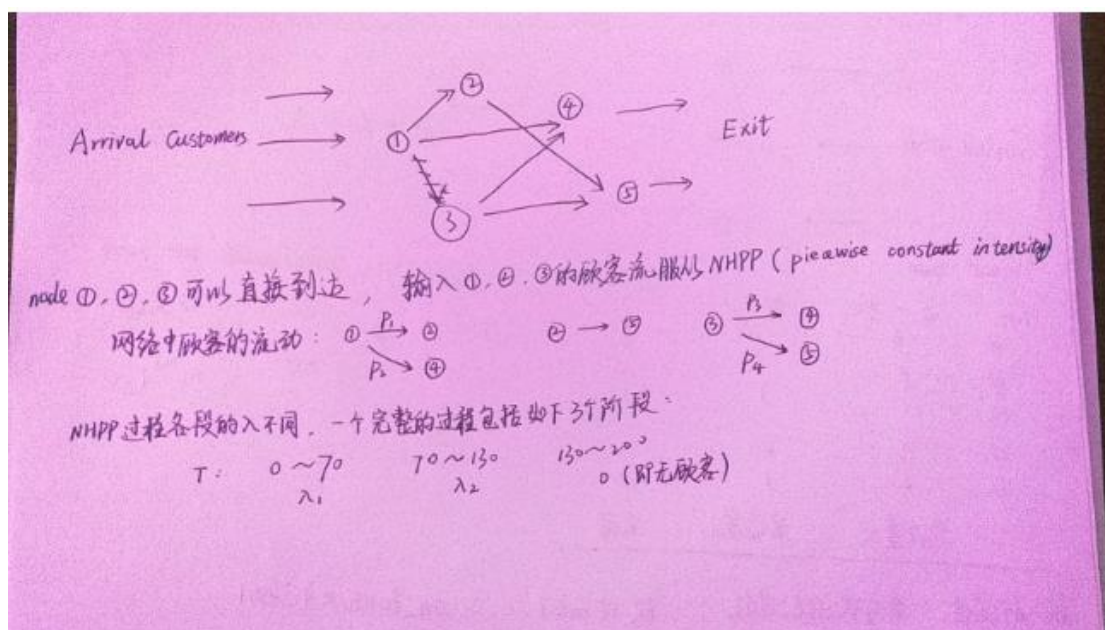 ②
④
Arrival Customers
①
Exit
⑤
3
node ①, ②, ③可以直接到达，输入①,②,③的顾客流服从NHPP ( piecewise constant intensity)
网络中顾客的流动： ① P₁ ② ② → ⑤ ③ P₃ ④
P₂ ④ P₄ ⑤
NHPP过程各段的λ不同．一个完整的过程包括如下3个阶段：
T： 0 ~ 70 70 ~ 130 130 ~ 200
λ₁ λ₂ 0 (即无顾客)